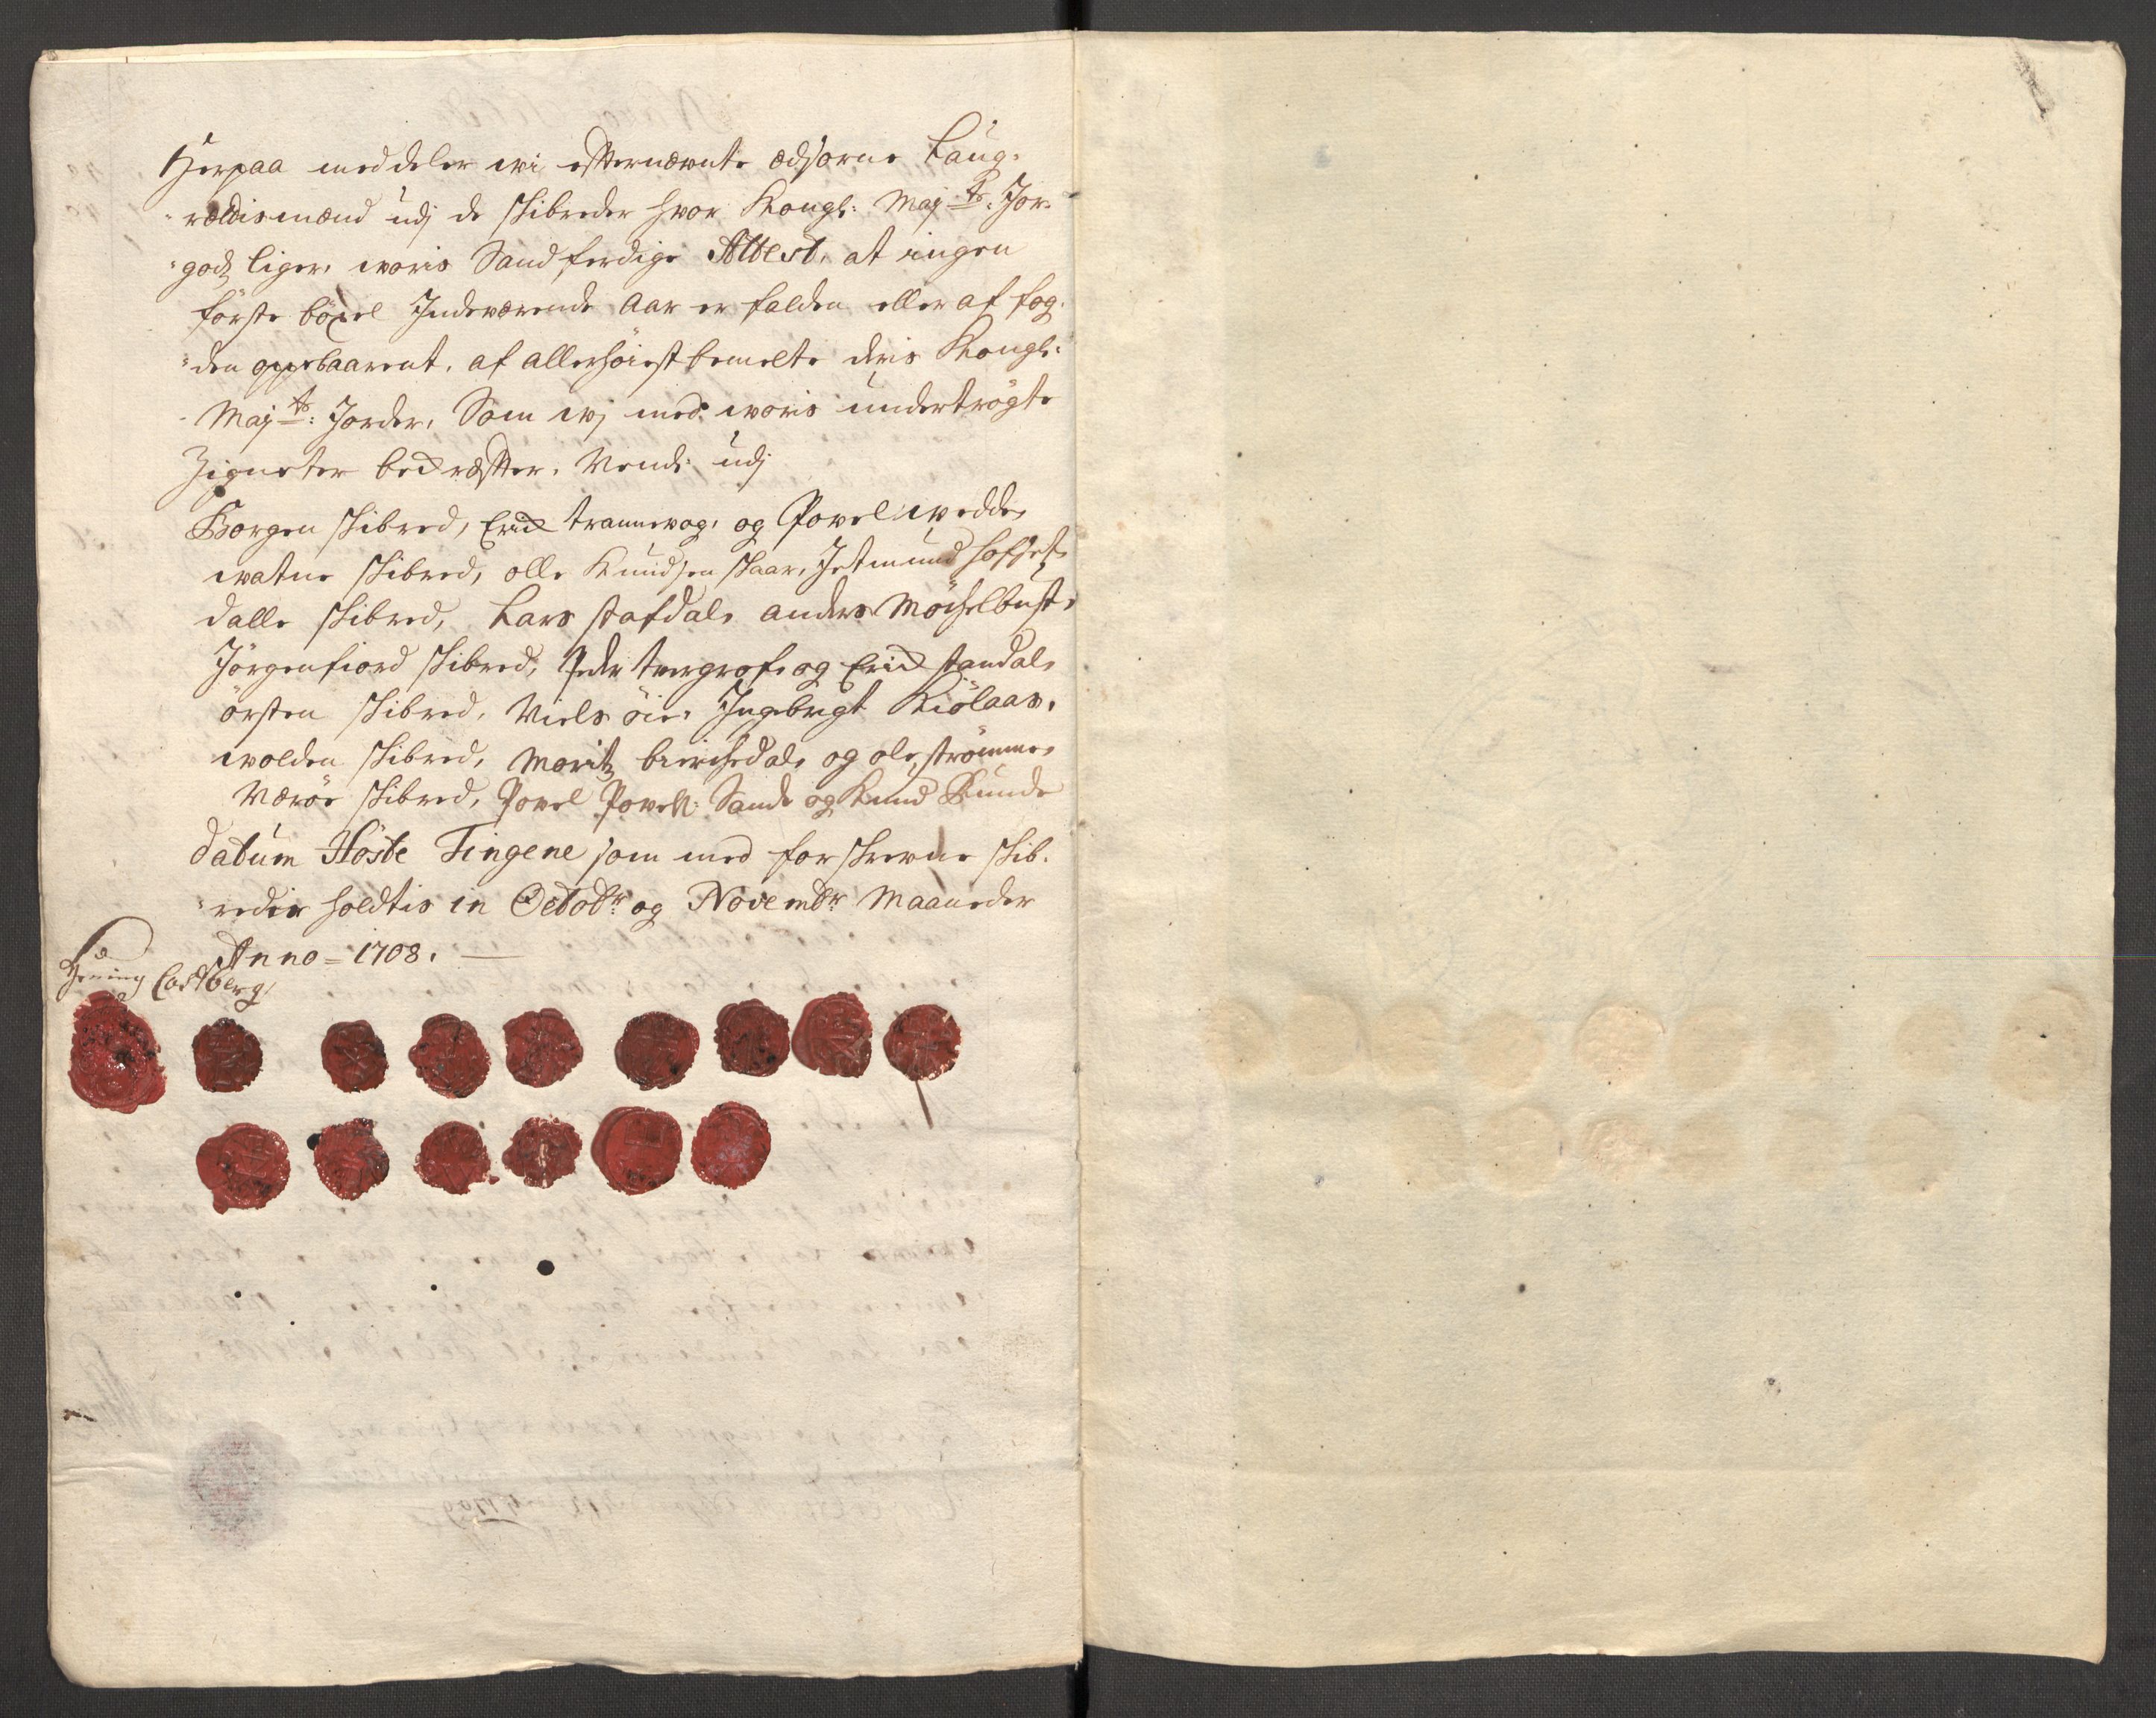 Herpaa meddeler wi efternæwnte ædsorne Laug-
rættismænd udj de skibreder hvor Kongl: Maj:ts: Jor-
godtz liger, woris Sandferdige Attest, at ingen
förste böxel Indeværende Aar er falden eller af fog-
den oppebaarent, af allerhöiest bemelte deris Kongl:
Maj:ts: Jorder, Som wj med woris undertrögte
Zigneter bekræfter, Nembl: udj
Borgen skibred, Erick trannewog, og Powel wedde,
watne skibred, olle Knudsen skaar, Jetmund hofset,
dalls skibred, Lars stafdal, anders Möchelbust,
Jörgenfiord skibred, Peder tvergrof, og Erick standal,
örsten skibred, Niels öie, Ingebrigt Kiölaas,
wolden skibred, Moritz bierchedal, og ole strömme,
Nærøe skibred, Powel Powels: Sande og Knud Runde
datum Höste Tingene som med forskrevne skib-
reder holdtis in Octobr: og Novembr Maaneder
Anno = 1708.
Hening Castberg